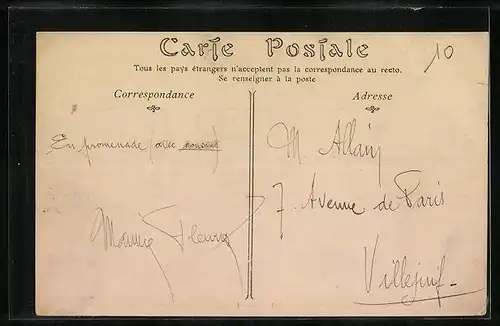 Carte Postale
10
Tous les pays étrangers n'acceptent pas la correspondance au recto.
Se renseigner à la poste
Correspondance
Adresse
En promenade (avec
M. Allain
7 Avenue de Paris
Maurice Fleury
Villejuif